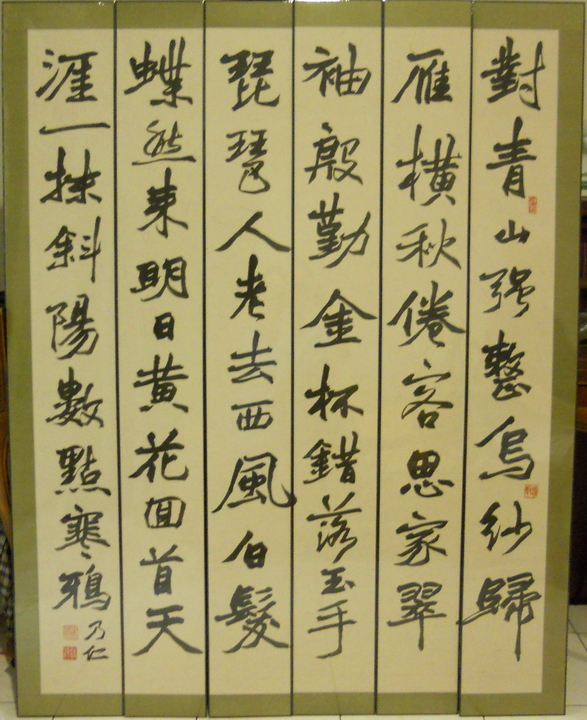 對青山强整烏紗歸
雁橫秋倦客思家翠
袖殷勤金杯錯落玉手
琵琶人老去西風白髮
蝶愁來明日黃花回首天
涯一抹斜陽數點寒鴉
乃仁